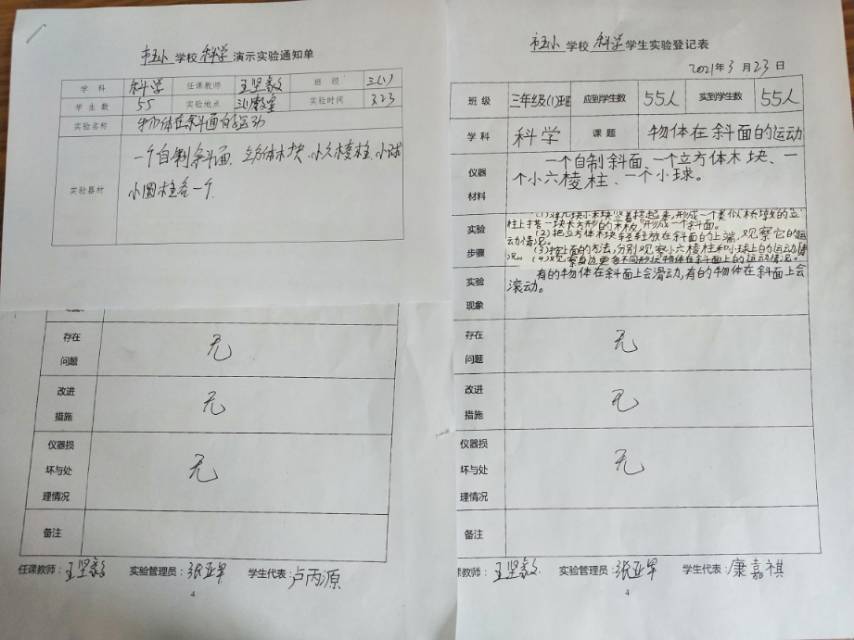 市五小学校科学演示实验通知单
学科 科学 任课教师 王坚毅 班级 三(1)
学生数 55 实验地点 实验时间 3.23
实验名称 物体在斜面的运动
实验器材 一个自制斜面、立方体木块、小六棱柱、小球
小圆柱各一个
存在
问题 无
改进
措施 无
仪器损
坏与处 无
理情况
备注
任课教师: 王坚毅 实验管理员: 张亚军 学生代表: 卢丙源
4
市五小学校科学学生实验登记表
2021年3月23日
班级 三年级(1)班 应到学生数 55人 实到学生数 55人
学科 科学 课题 物体在斜面的运动
仪器 一个自制斜面、一个立方体木块、一
材料 个小六棱柱、一个小球。
实验 柱上搭一块长方形的木板,形成一个斜面。
(2)把立方体木块轻轻放在斜面的上端,观察它的运
动情况。
步骤 (3)按上面的方法,分别观察小六棱柱和小球上的运动情
况。(4)观察身边更多不同形状物体在斜面上的运动情况。
实验 有的物体在斜面上会滑动,有的物体在斜面上会
现象 滚动。
存在
问题 无
改进
措施 无
仪器损
坏与处 无
理情况
备注
课教师: 王坚毅 实验管理员: 张亚军 学生代表: 康嘉祺
4